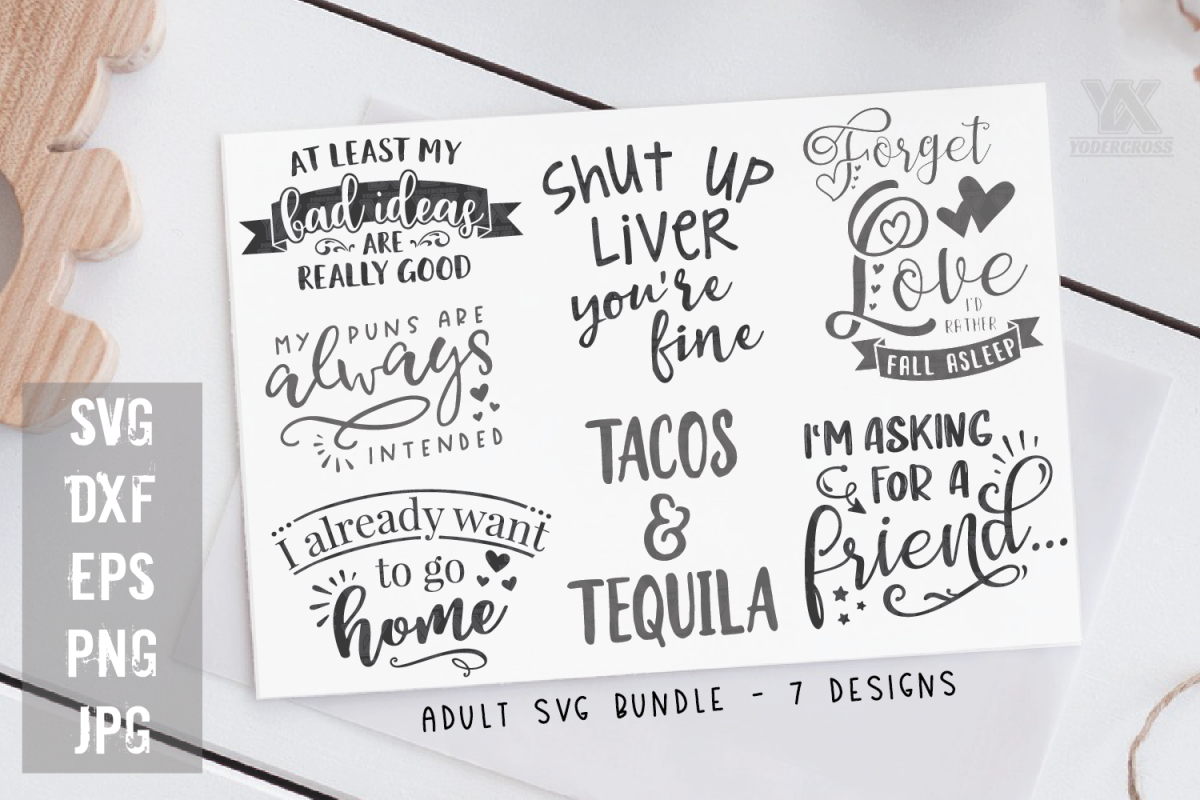 AT LEAST MY
bad ideas
ARE
REALLY GOOD
MY PUNS ARE
always
INTENDED
I already want
to go
home
Shut UP
LiVER
you're
fine
TACOS
&
TEQUILA
Forget
Love
I'D
RATHER
FALL ASLEEP
I'M ASKING
FOR A
friend...
YX
YODERCROSS
SVG
DXF
EPS
PNG
JPG
ADULT SVG BUNDLE - 7 DESIGNS